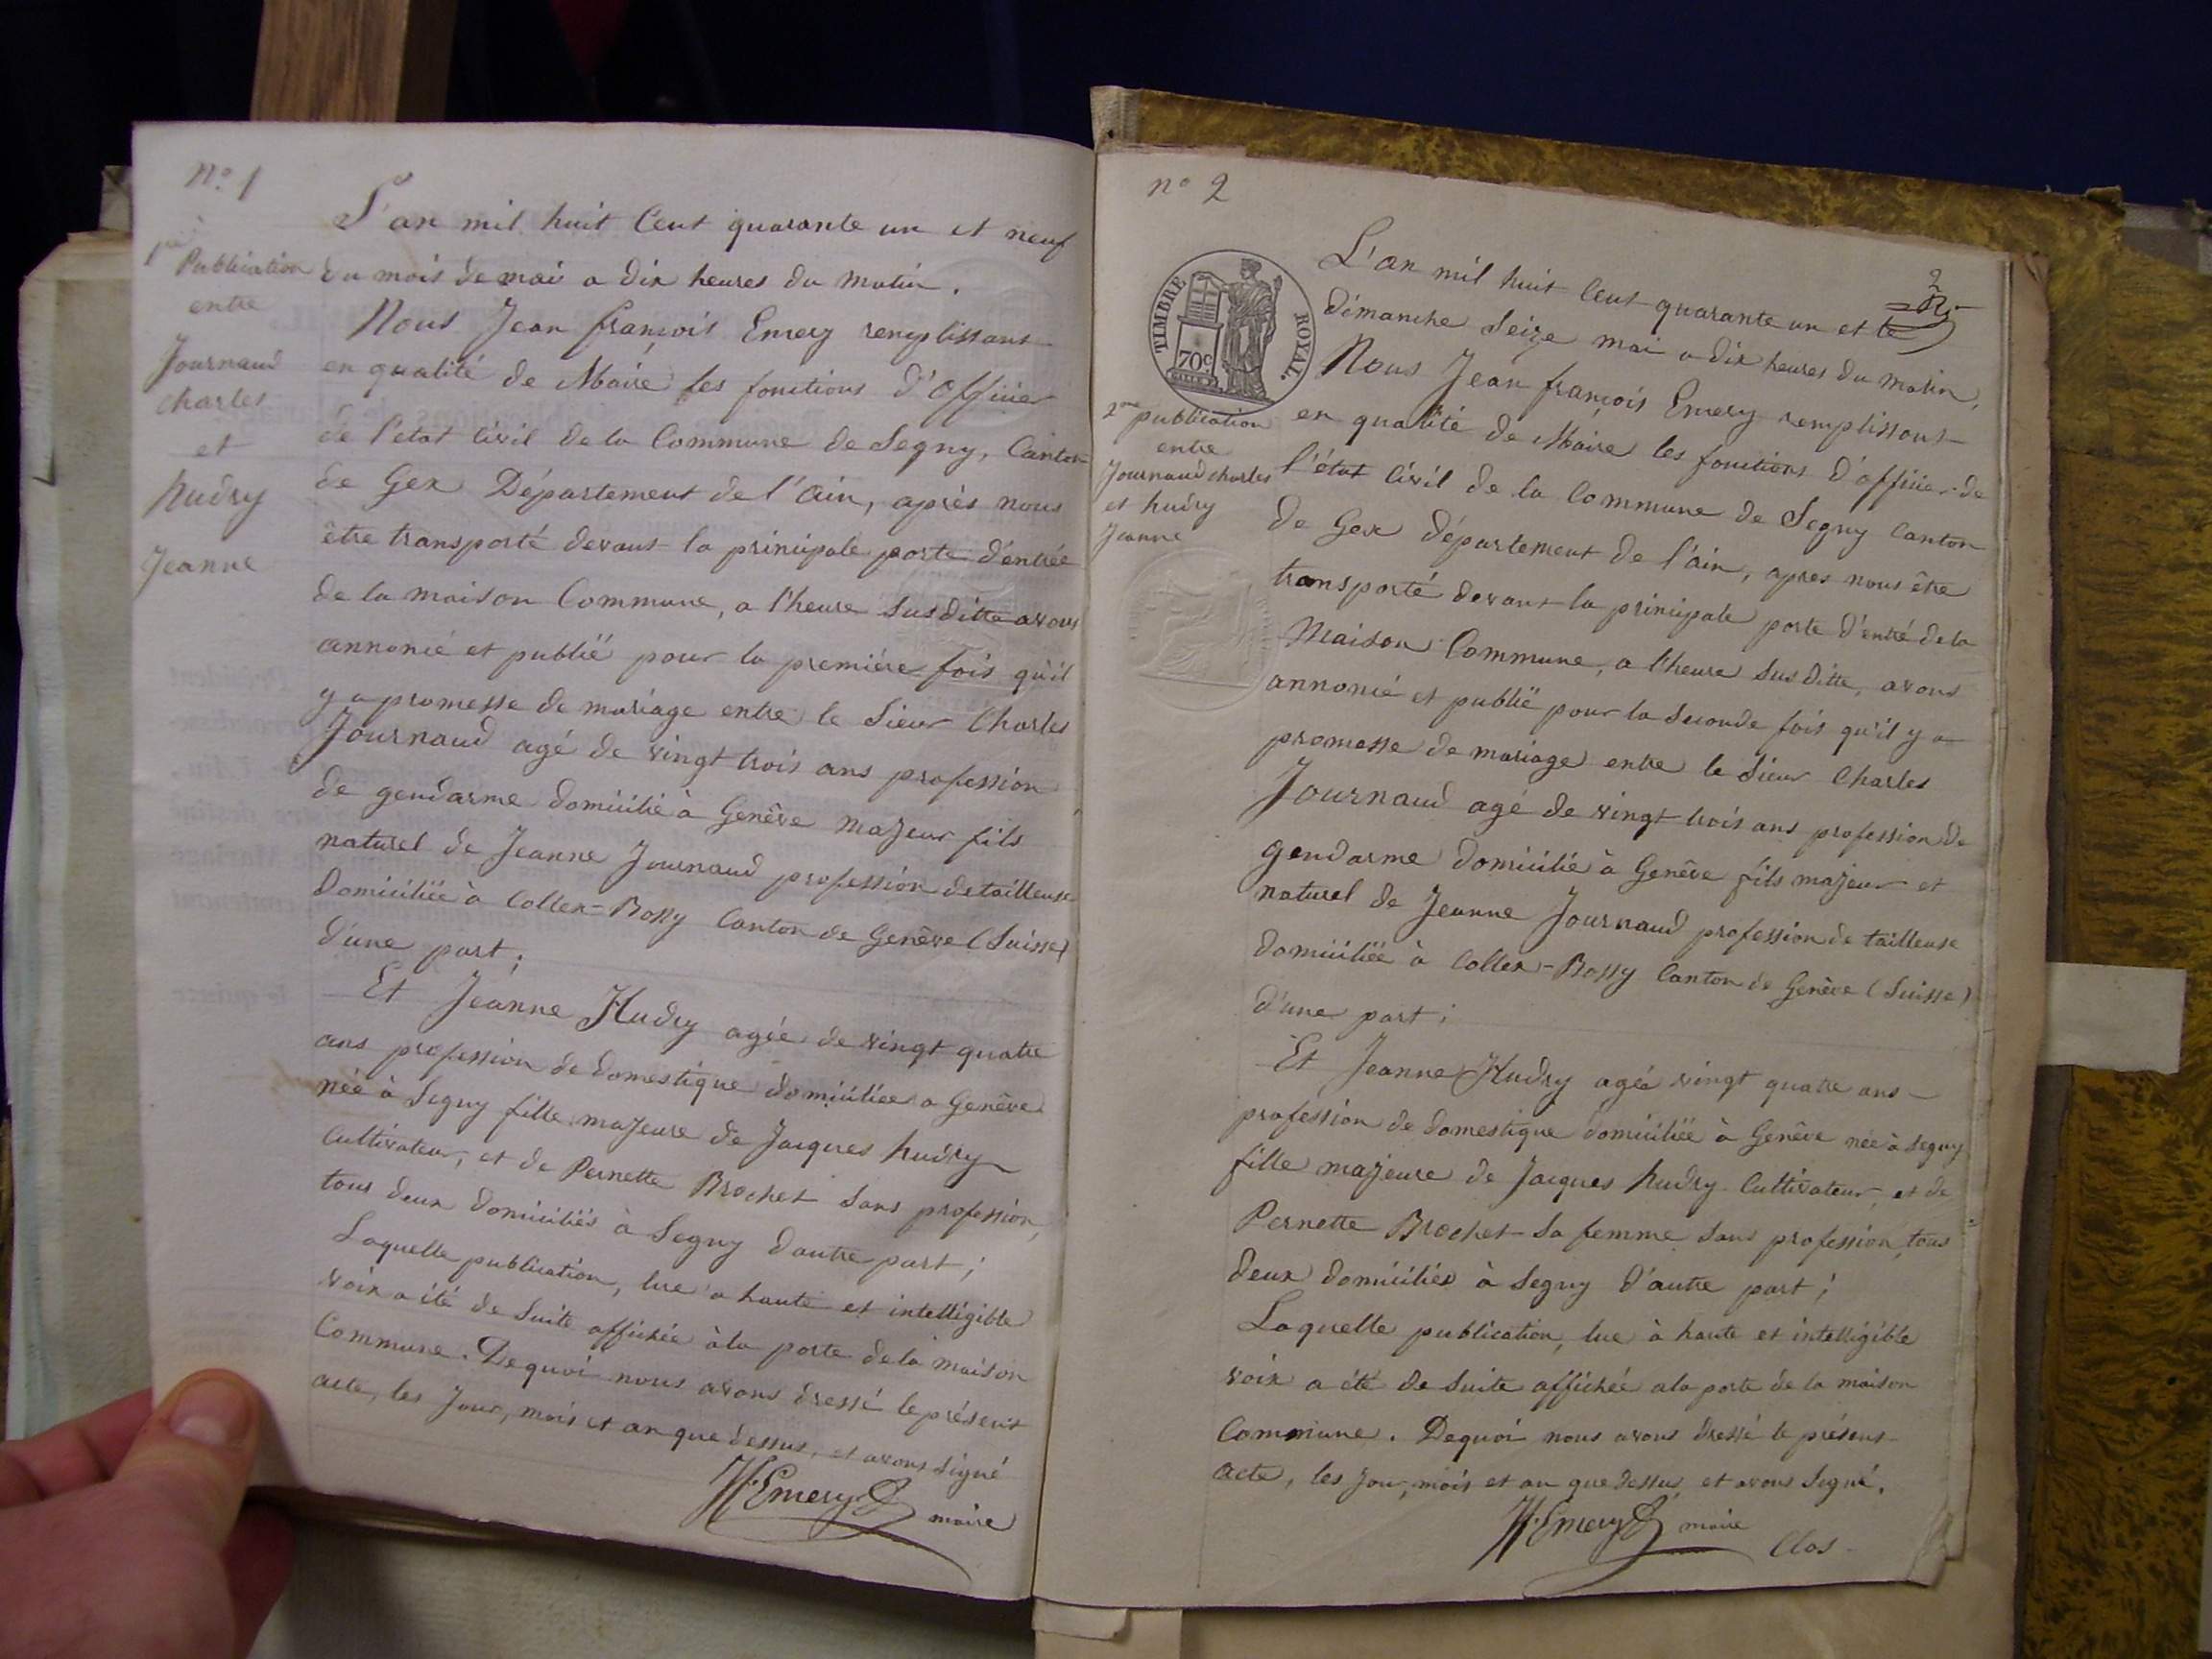 n.o 1
1ere Publication
entre
Journaud
charles
et
hudry
Jeanne
L'an mil huit Cent quarante un et neuf
du mois de mai a dix heures du matin.
Nous Jean françois Emery remplissant
en qualité de Maire les fonctions d'Officier
de l'etat Civil de la Commune de Segny, Canton
de Gex Département de l'Ain, après nous
être transporté devant la principale porte d'entrée
de la maison Commune, a l'heure Susditte avons
annoncé et publié pour la première fois qu'il
y a promesse de mariage entre le Sieur Charles
Journaud agé de vingt trois ans profession
de gendarme domicilié à Genève majeur fils
naturel de Jeanne Journaud profession de tailleuse
Domiciliée à Collex-Bossy Canton de Genève (Suisse)
d'une part;
Et Jeanne Hudry agée de vingt quatre
ans profession de domestique domiciliée a Genève
née à Segny fille majeure de Jacques hudry
Cultivateur, et de Pernette Brochet Sans profession,
tous deux domiciliés à Segny d'autre part;
Laquelle publication, lue a haute et intelligible
voix a été de Suite affichée à la porte de la maison
Commune. De quoi nous avons dressé le présent
acte, les Jour, mois et an que dessus, et avons Signé
Emery maire
n.o 2
2
TIMBRE ROYAL.
70c
2me publication
entre
Journaud charles
et hudry
Jeanne
L'an mil huit Cent quarante un et le
dimanche Seize mai a dix heures du matin,
Nous Jean françois Emery remplissant
en qualité de Maire les fonctions d'officier de
l'état Civil de la Commune de Segny Canton
de Gex département de l'ain, apres nous être
transporté devant la principale porte d'entré de la
Maison Commune, a l'heure Susditte, avons
annoncé et publié pour la Seconde fois qu'il y a
promesse de mariage entre le Sieur Charles
Journaud agé de vingt trois ans profession de
gendarme domicilié à Genève fils majeur et
naturel de Jeanne Journaud profession de tailleuse
domiciliée à Collex-Bossy Canton de Genève (Suisse)
d'une part;
Et Jeanne Hudry agée vingt quatre ans
profession de domestique domiciliée à Genève née à Segny
fille majeure de Jacques hudry Cultivateur, et de
Pernette Brochet Sa femme Sans profession, tous
deux domiciliés à Segny d'autre part;
Laquelle publication, lue à haute et intelligible
voix a été de Suite affichée a la porte de la maison
Commune. De quoi nous avons dressé le présent
acte, les Jour, mois et an que dessus, et avons Signé.
Emery maire
Clos